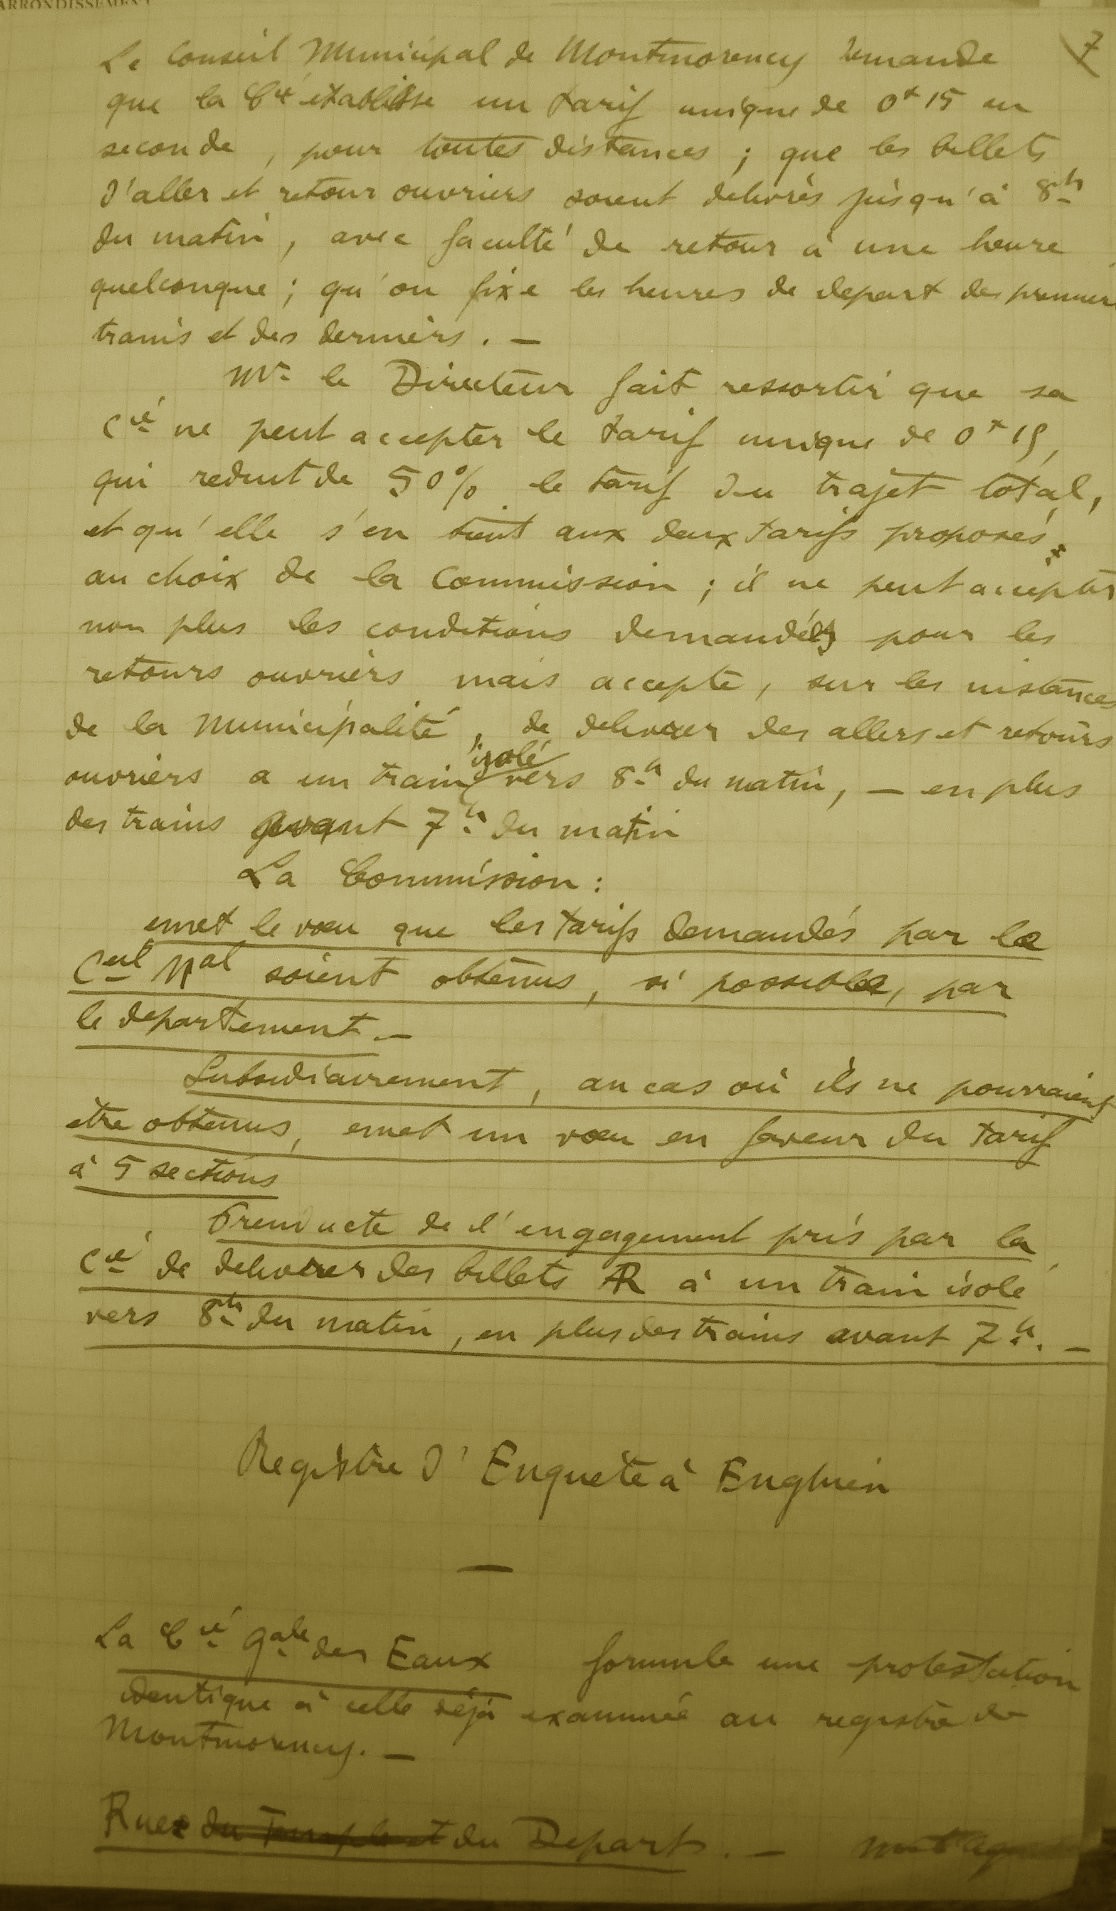 ARRONDISSEMENT
7
Le Conseil Municipal de Montmorency demande
que la Cie établisse un tarif unique de 0f 15 en
seconde, pour toutes distances ; que les billets
d'aller et retour ouvriers soient delivrés jusqu'à 8h
du matin, avec faculté de retour à une heure
quelconque ; qu'on fixe les heures de depart des premiers
trains et des derniers. —
Mr le Directeur fait ressortir que sa
Cié ne peut accepter le tarif unique de 0f 15,
qui reduit de 50% le tarif du trajet total,
et qu'elle s'en tient aux deux tarifs proposés
au choix de la Commission ; il ne peut accepter
non plus les conditions demandées pour les
retours ouvriers mais accepte, sur les instances
de la Municipalité, de delivrer des allers et retours
isolé
ouvriers a un train vers 8h du matin, — en plus
des trains avant 7h du matin
La Commission :
emet le vœu que les tarifs demandés par le
Ceil Mal soient obtenus, si possible, par
le departement. —
Subsidiairement, au cas où ils ne pourraient
etre obtenus, emet un vœu en faveur du tarif
à 5 sections
Prend acte de l'engagement pris par la
Cié de delivrer des billets AR à un train isolé
vers 8h du matin, en plus des trains avant 7h. —
Registre d'Enquete à Enghien
—
La Cié Gale des Eaux formule une protestation
identique à celle déjà examinée au registre de
Montmorency. —
Rue du Temple et du Depart. —